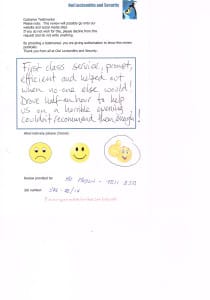 Owl Locksmiths and Security
Customer Testimonial
Please note: This review will possibly go onto our
website and social media sites
If you do not wish for this, please decline from this
request and do not write anything
By providing a testimonial, you are giving authorisation to show this review
publically.
Thank you from all at Owl Locksmiths and Security.
First class service, prompt,
efficient and helped out
when no-one else would!
Drove half-an-hour to help
us on a horrible evening,
couldn't recommend them enough!
Review provided by
Job number